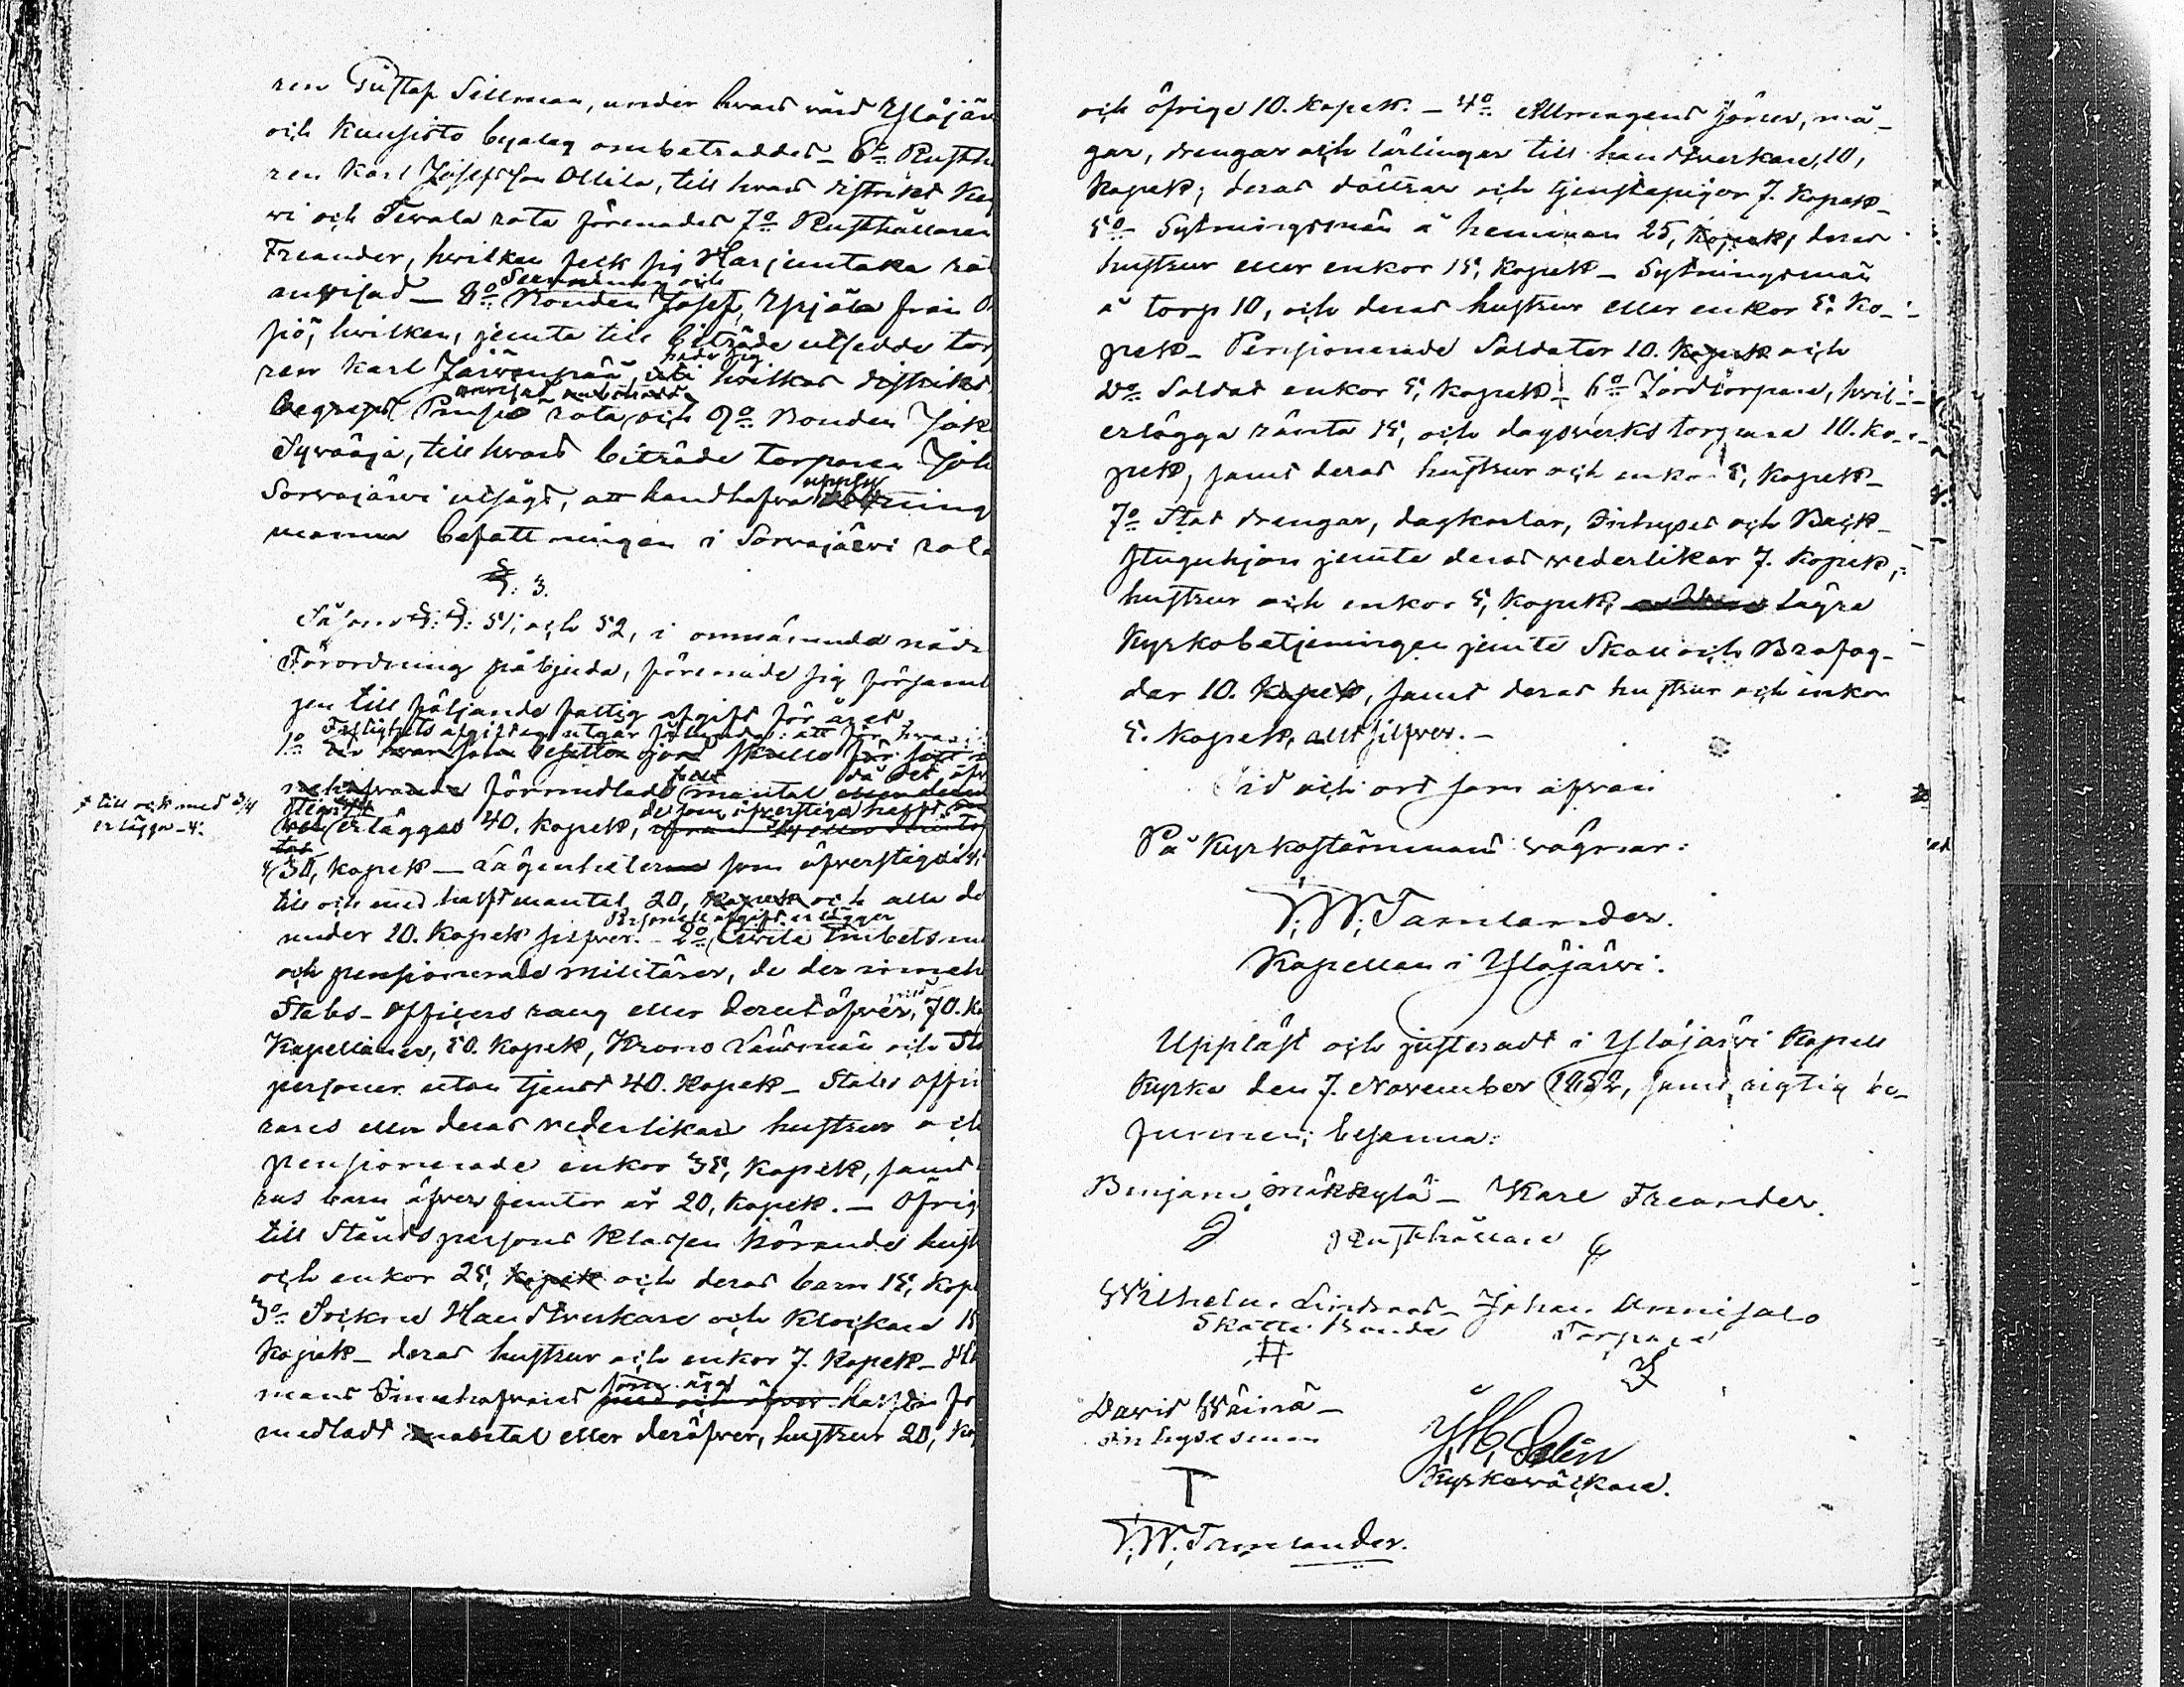 ren Gustaf Sillman, under hvars vård Ylöjär
och Kuusisto byalag ombetroddes – 6o Rusth
ren Karl Josefsson Ollila, till hvars distrikt Ke
vi och Tevala rota förenades 7o Rusthållaren
Freander, hvilken fick sig Harjuntaka ro
anvisad – 8o Bonden Josef,
sjö, hvilken, jemte till biträde utsedde tor
ren Karl Järvenpää, hvilkas distrikt
begrepet rota, och 9o Bonden Jak
Syvääjä, till hvars biträde torparen Joh
Sorvajärvi utsågs, att handhafva
manna befattningen i Sorvajärvi rota
§: 3.
Såsom §: §: 51, och 52, i omnämnda nåd
Förordning påbjuda, förenade sig församl
gen till följande fattig afgift för året,
Fastighets afgiften utgår följande: att för hva
1o skulle för
förmedlade mantal
+ till och med 3/4
erlägga – 4.
erläggas 40. kopek, de som öfverstiga helft
30, kopek – Lägenheterna som öfverstiga
till och med helft mantal 20, kopek och alla de
Personell afgift erlägger
under 10. kopek silfver. – 2o Civile Embetsm
och pensionerade militärer, de der inneh
Stabs-officers rang eller derutöfver, 70. Ko
Kapellaner, 50. kopek, Krono Länsmän och St
personer utan tjenst 40. Kopek – Stabs offi
rares eller deras vederlikars hustrur och
pensionerade enkor 35, kopek, samt
ras barn öfver femton år 20, kopek. – Öfrig
till Ståndspersons klassen hörande hust
och enkor 25, kopek och deras barn 15, kop
3o Sockne Handtverkare och Klockare 15
kopek – deras hustrur och enkor 7. kopek –
mans Innehafvare som äga half för
medladt mantal eller deröfver, hustrur 20, ko
och öfrige 10. kopek. – 4o Allmogens söner, må-
gar, drengar och lärlingar till handtverkare, 10,
kopek; deras döttrar och tjenstepigor 7. kopek –
5o Sytningsmän å hemman 25, kopek, deras
hustrur eller enkor 15, kopek – Sytningsmän
å torp 10, och deras hustrur eller enkor 5. ko-
pek – Pensionerade Soldater 10. kopek och
Do Soldat enkor 5, kopek – 6o Jordtorpare, hvil-
erlägga ränta 15, och dagsverks torpare 10. ko-
pek, samt deras hustrur och enkor 5, kopek –
7o Stat drengar, dagkarlar, Inhyses och Back-
stuguhjon jemte deras vederlikar 7. kopek,
hustrur och enkor 5, kopek, lägre
Kyrkobetjeningen jemte Skall och Brofog-
dar 10. kopek, samt deras hustrur och enkor
5. kopek, allt silfver. –
Tid och ort som ofvan
På Kyrkostämmans vägnar:
V. W. Tamlander.
Kapellan i Ylöjärvi.
Uppläst och justeradt i Ylöjärvi Kapell
Kyrka den 7. November 1852, samt rigtig be-
funnen; besanna:
Benjam. Mäkkylä – Karl Freander.
Rusthållare
Wilhelm. – Johan Annisalo
Skatte Bonde Torpare
David Wäinä –
Inhysesman
Kyrkoväckare.
T
V. W. Tamlander.